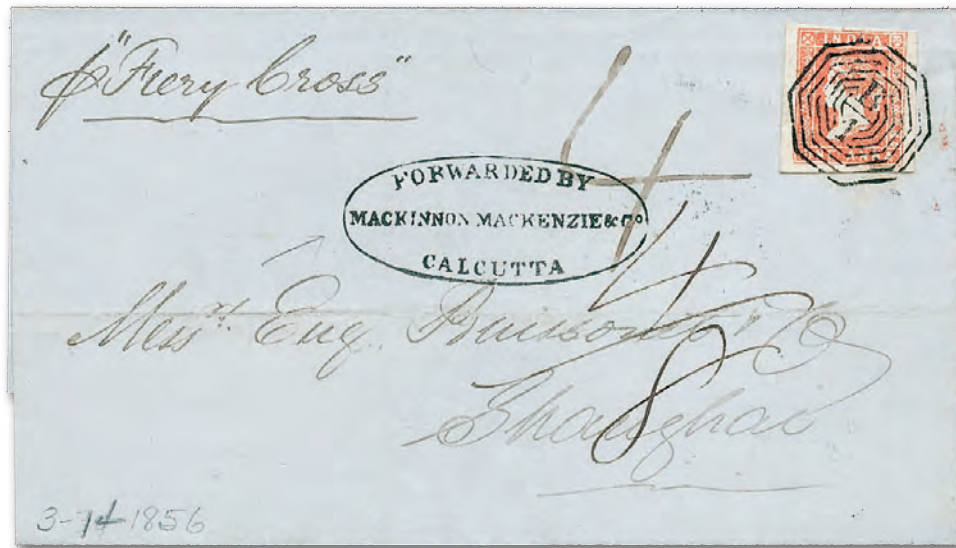 p "Fiery Cross"
INDIA
B
1
4
FORWARDED BY
MACKINNON MACKENZIE & Co
CALCUTTA
4
Messrs. Eug. & Co
8
Shanghai
3-4 1856